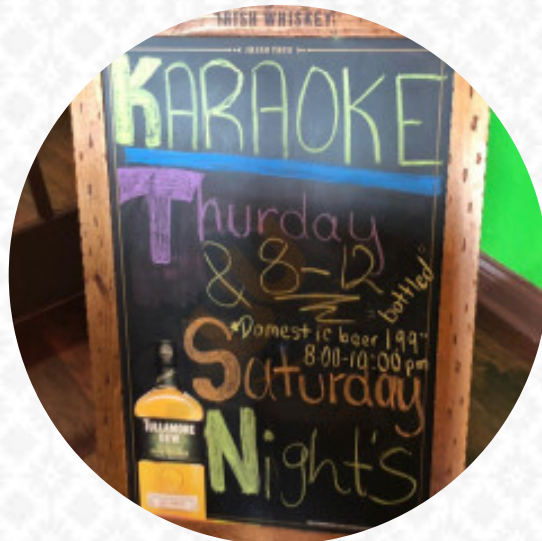 IRISH WHISKEY
KARAOKE
Thurday
& 8-12
bottled
*Domestic beer 199
8:00-10:00 pm
Saturday
Night's
TULLAMORE
DEW